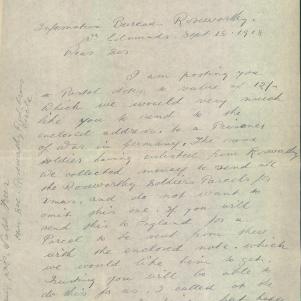 Information Bureau Roseworthy.
St Edmunds. Sept 18. 1918
Dear Sir
I am posting you
a Postal Note, to value of 12/-
which we would very much
like you to send to the
enclosed address, to a Prisoner
of War in Germany. The
soldier having enlisted from Roseworthy
we collected money to send all
the Roseworthy Soldiers Parcels for
Xmas, and do not want to
omit this one. If you will
send this to England for a
Parcel to be sent from there
with the enclosed note, which
we would like him to get.
Trusting you will be able to
do this for us. I called at the